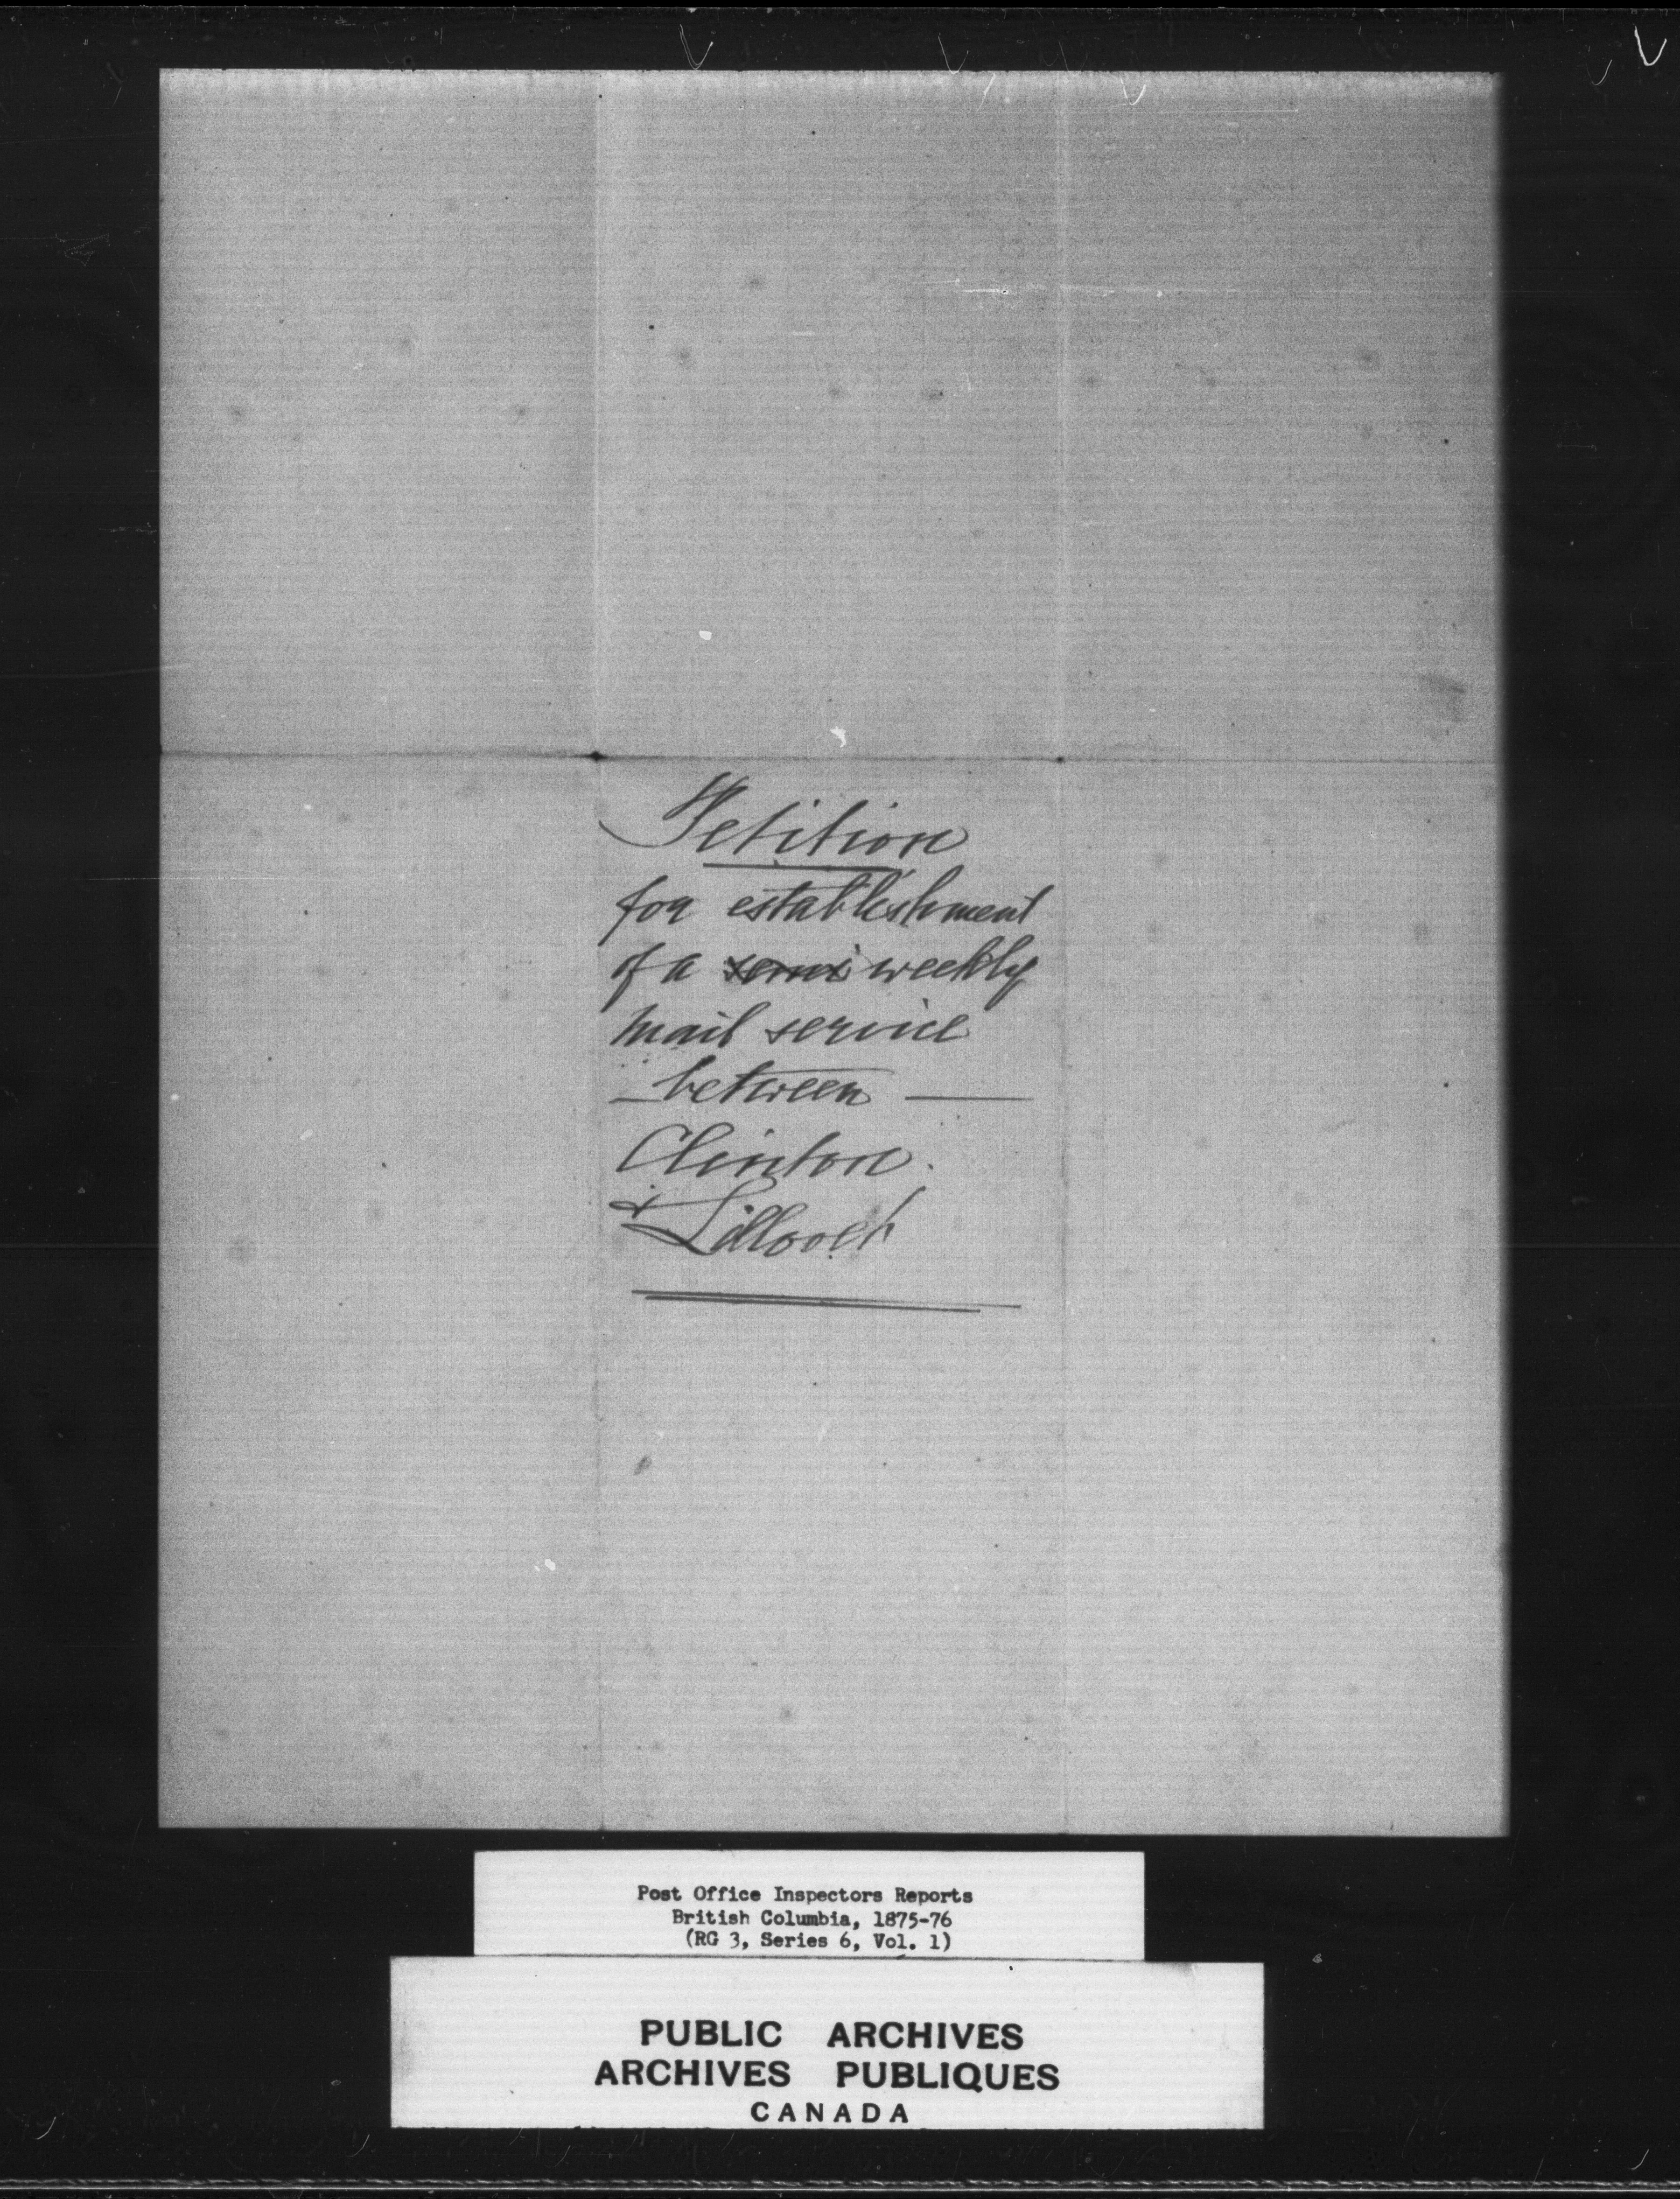 Petition
for establishment
of a semi weekly
mail service
between
Clinton.
& Lillooet
Post Office Inspectors Reports
British Columbia, 1875-76
(RG 3, Series 6, Vol. 1)
PUBLIC ARCHIVES
ARCHIVES PUBLIQUES
CANADA